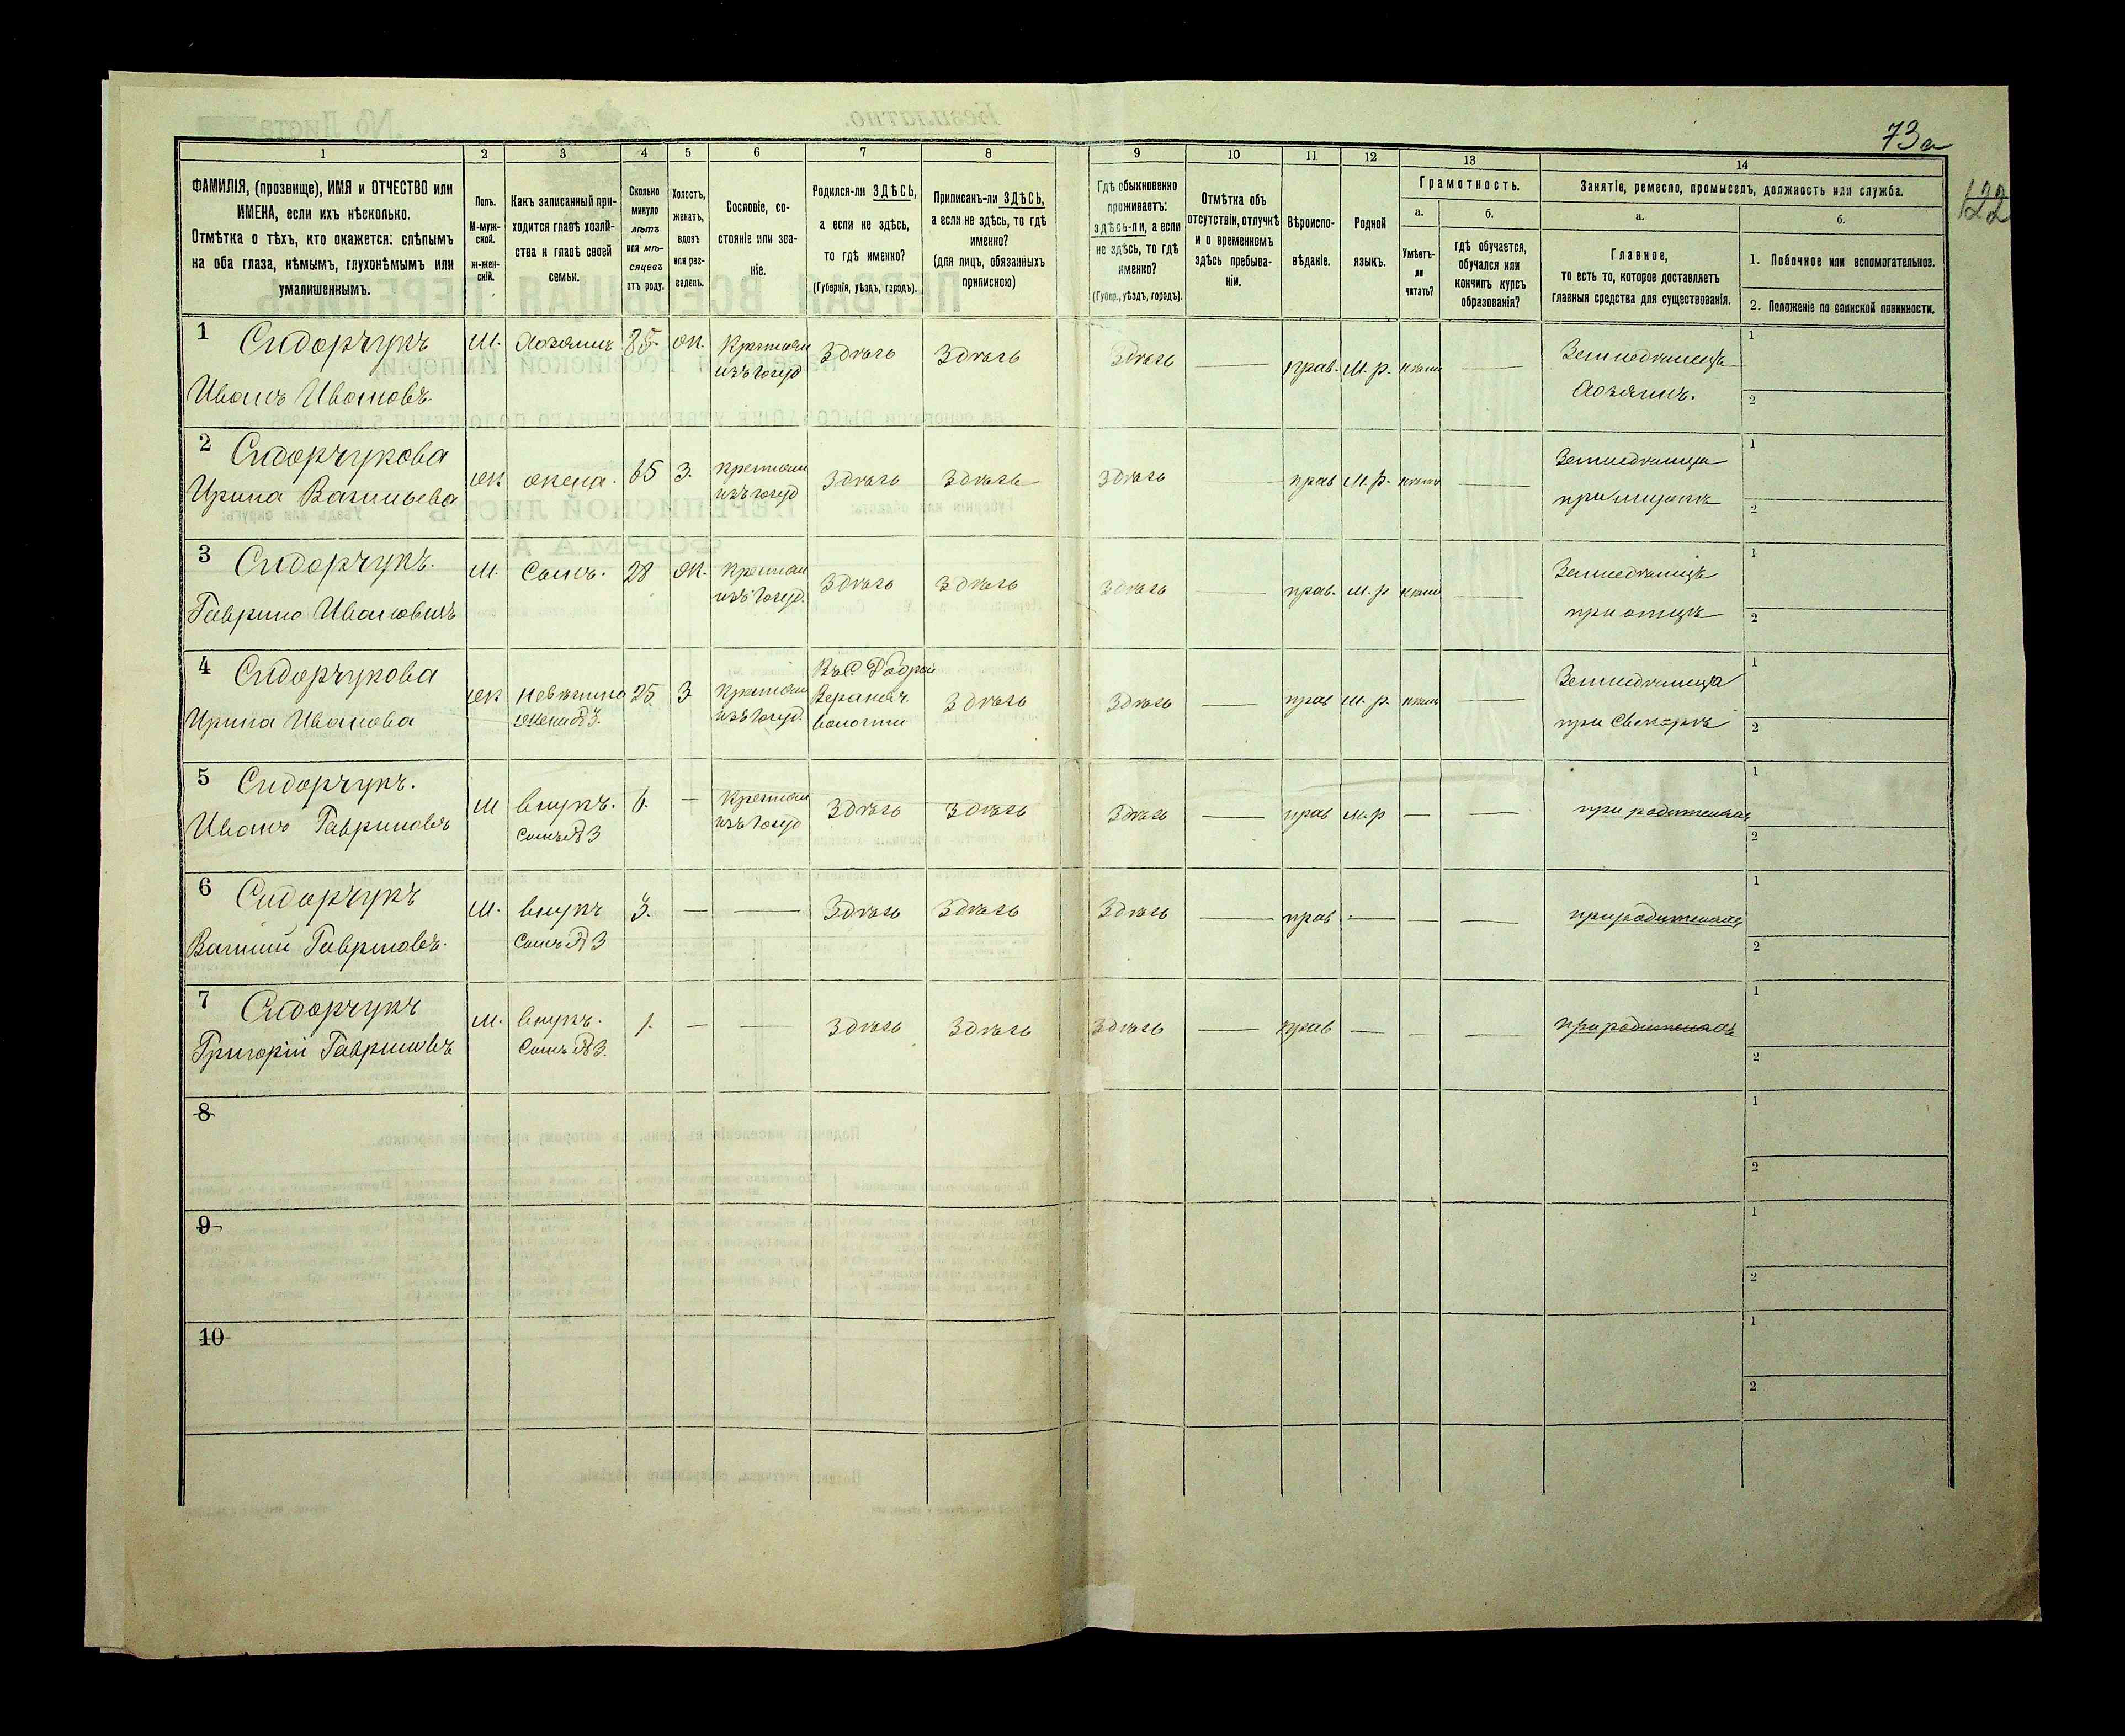 73а
122
1
2
3
4
5
6
7
8
9
10
11
12
13
14
ФАМИЛІЯ, (прозвище), ИМЯ и ОТЧЕСТВО или
ИМЕНА, если ихъ нѣсколько.
Отмѣтка о тѣхъ, кто окажется: слѣпымъ
на оба глаза, нѣмымъ, глухонѣмымъ или
умалишеннымъ.
Полъ.
М-муж-
ской.
Ж-жен-
скій.
Какъ записанный при-
ходится главѣ хозяй-
ства и главѣ своей
семьи.
Сколько
минуло
лѣтъ
или мѣ-
сяцевъ
отъ роду.
Холостъ,
женатъ,
вдовъ
или раз-
веденъ.
Сословіе, со-
стояніе или зва-
ніе.
Родился-ли ЗДѢСЬ,
а если не здѣсь,
то гдѣ именно?
(Губернія, уѣздъ, городъ).
Приписанъ-ли ЗДѢСЬ,
а если не здѣсь, то гдѣ
именно?
(для лицъ, обязанныхъ
припискою)
Гдѣ обыкновенно
проживаетъ:
здѣсь-ли, а если
не здѣсь, то гдѣ
именно?
(Губер., уѣздъ, городъ).
Отмѣтка объ
отсутствіи, отлучкѣ
и о временномъ
здѣсь пребыва-
ніи.
Вѣроиспо-
вѣданіе.
Родной
языкъ.
Грамотность.
а.
Умѣетъ-
ли
читать?
б.
гдѣ обучается,
обучался или
кончилъ курсъ
образованія?
Занятіе, ремесло, промыселъ, должность или служба.
а.
Главное,
то есть то, которое доставляетъ
главныя средства для существованія.
б.
1. Побочное или вспомогательное.
2. Положеніе по воинской повинности.
1 Сидорчукъ
Иванъ Ивановъ.
М. Хозяинъ
ж. Крестьян
изъ госуд
Здѣсь Здѣсь Здѣсь — прав. м. р. —
Земледѣлецъ
Хозяинъ.
1
2
2 Сидорчукова
Ирина Васильева
ж жена. 65 з. Крестьян
изъ госуд
Здѣсь Здѣсь Здѣсь — прав м. р. —
Земледѣлица
1
2
3 Сидорчукъ.
Гаврило Ивановичъ
М. Сынъ. 28 ж. Крестьян
изъ госуд.
Здѣсь Здѣсь Здѣсь — прав. м. р —
Земледѣлецъ
при отцѣ
1
2
4 Сидорчукова
Ирина Иванова
ж невѣстка 25 з Крестьян
жена № 3. изъ госуд.
волости
Здѣсь Здѣсь — прав м. р. —
Земледѣлица
при Свекорѣ
1
2
5 Сидорчукъ.
Иванъ Гавриловъ
М внукъ. 6. — Крестьян
Сынъ № 3 изъ госуд
Здѣсь Здѣсь Здѣсь — прав м. р — —
при родителяхъ
1
2
6 Сидорчукъ
Василій Гавриловъ.
М. внукъ 3. — —
Сынъ № 3
Здѣсь Здѣсь Здѣсь — прав — — —
при родителяхъ
1
2
7 Сидорчукъ
Григорій Гавриловъ
М. внукъ. 1. — —
Сынъ № 3.
Здѣсь Здѣсь Здѣсь — прав — — —
при родителяхъ
1
2
8
1
2
9
1
2
10
1
2